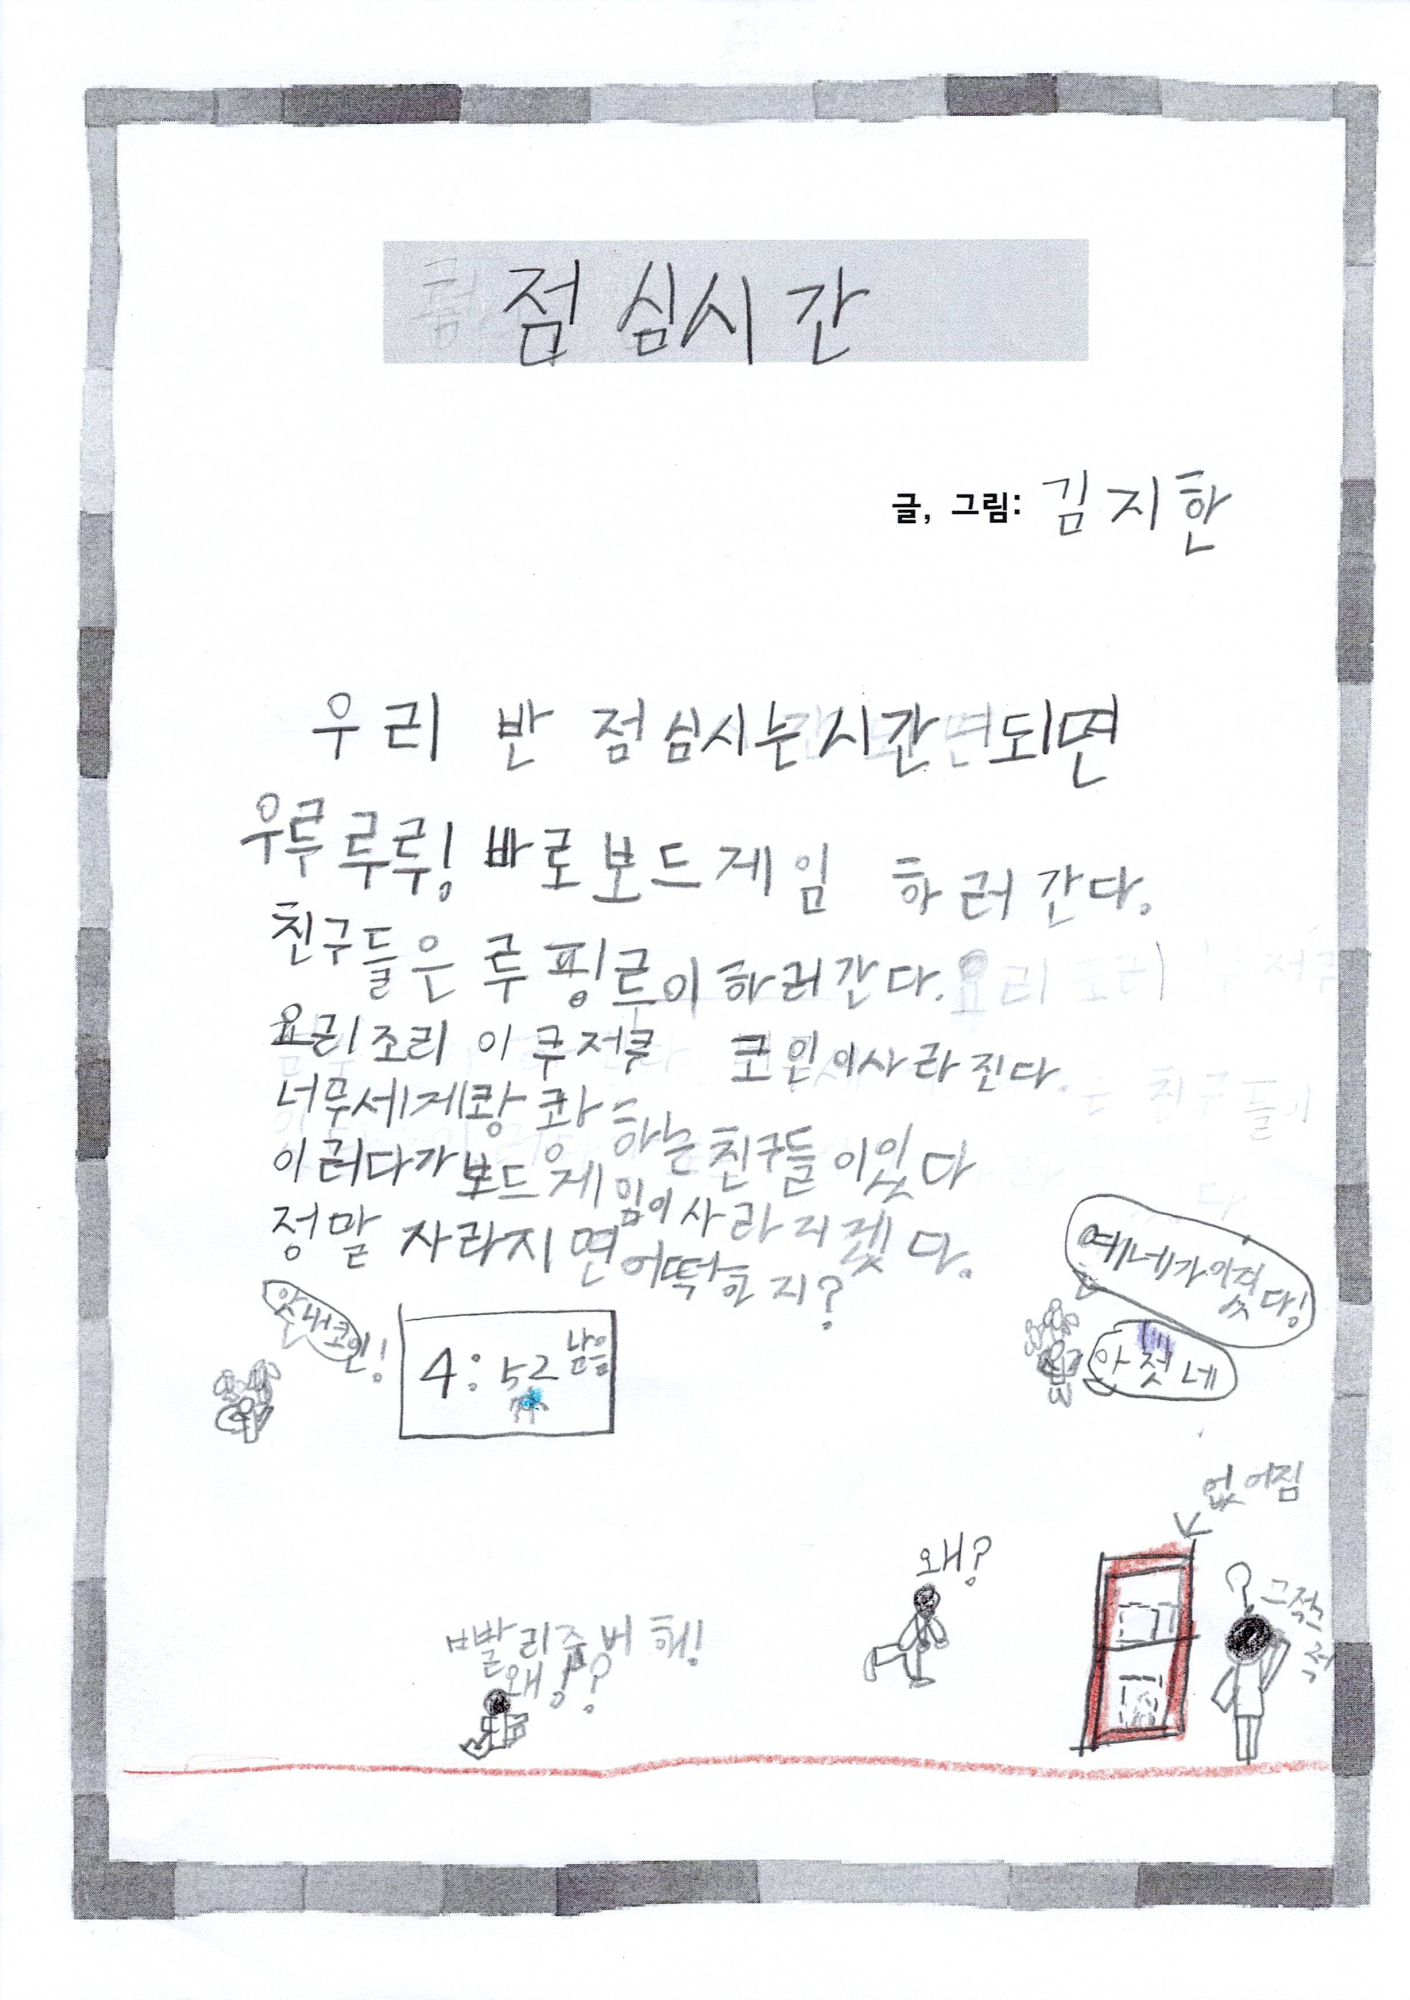 점심시간
글, 그림: 김지한
우리 반 점심시는시간되면
우루루루루! 바로보드게임 하러간다.
친구들은 루핑루이하러간다.
요리조리 이쿠저쿠 코인이사라진다.
너무세게쾅쾅하는친구들이있다
이러다가보드게임이사라지겠다.
정말 사라지면어떡하지?
앗내코인!
4:52 남음
예네가이겼다!
아 졋네
없어짐
왜?
그적
그적
빨리주버해!
왜?